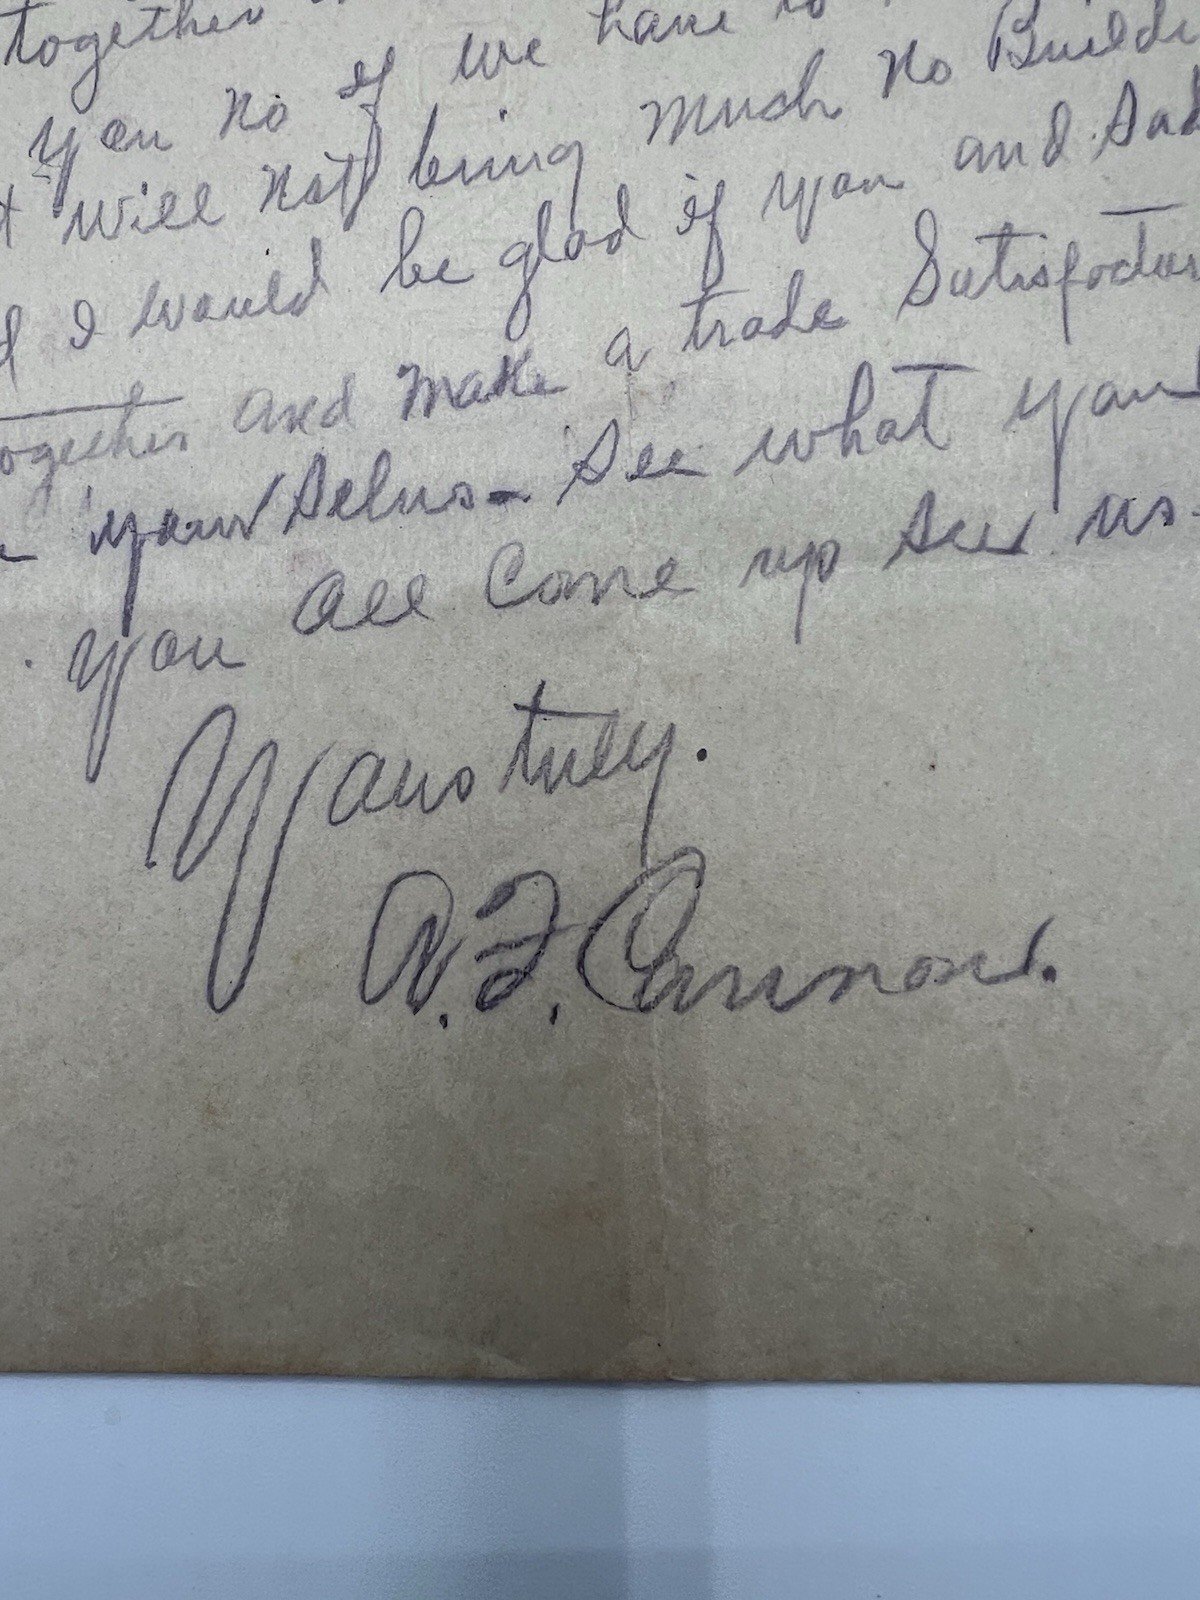 together
you no if we have to
t will not bring much no Buildi
d I would be glad if you and Sad
together and make a trade Satisfactor
your selves - see what you
you all come up see us.
Yours truly.
A. F. Cannon.